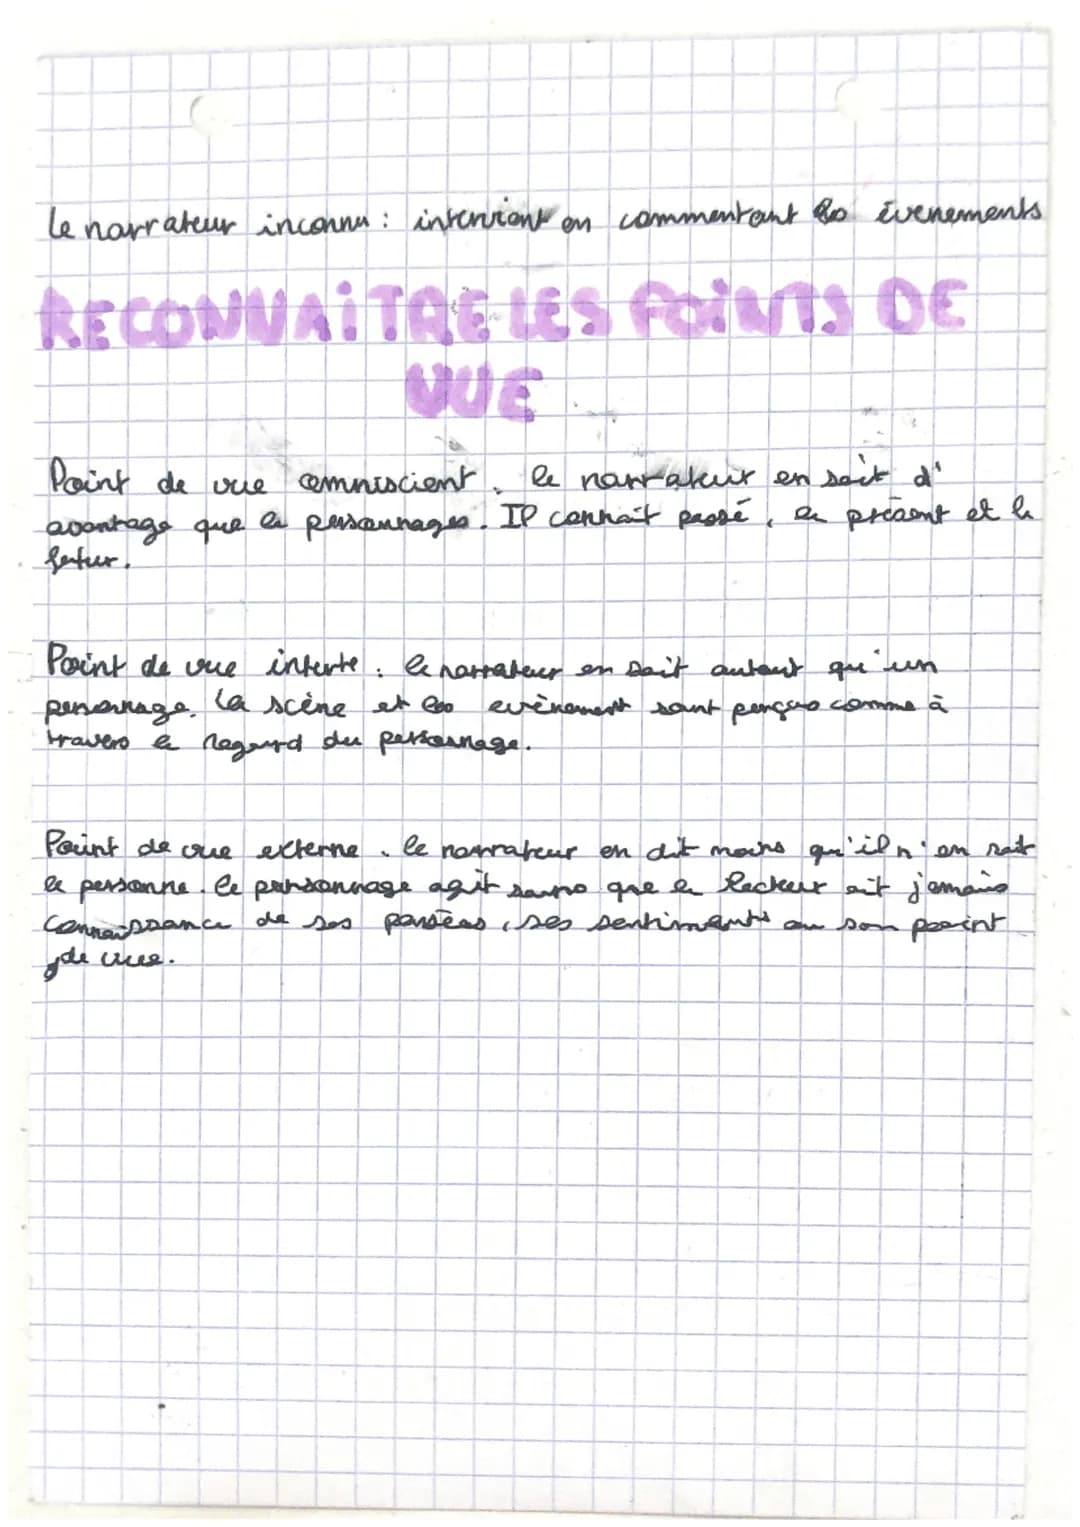 Le narrateur inconnu : intervient en commentant les évenements
RECONNAîTRE LES POiNTS DE
VUE
Point de vue omniscient. le narrateur en sait d'
avantage que le personnages. Il connaît passé, le présent et le
futur.
Point de vue interte : le narrateur en sait autant qu'un
personnage. La scène et les evènement sont perçus comme à
travers le regard du personnage.
Point de vue externe. le narrateur en dit moins qu'il n'en sait
le personne. le personnage agit sans que le lecteur ait jamais
connaissance de ses pensées, ses sentiments ou son point
de vue.